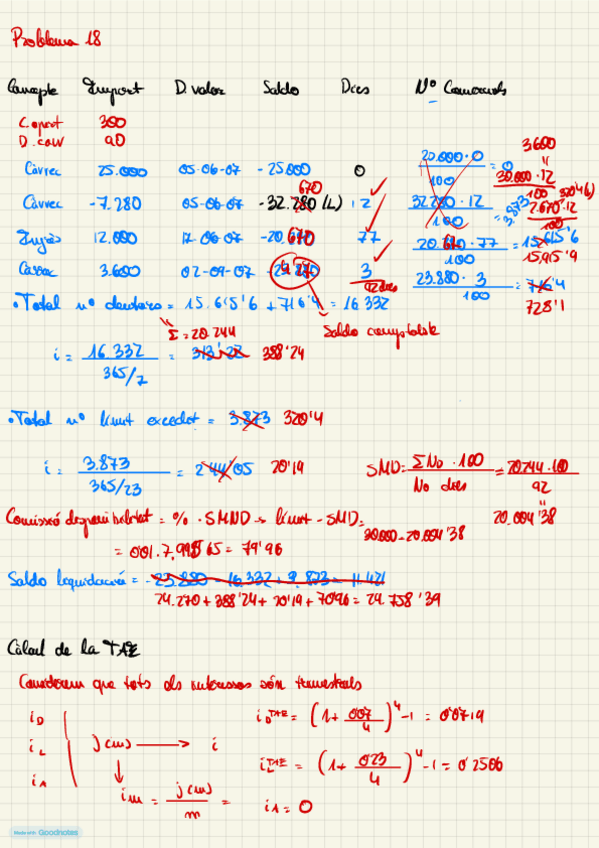 Problema 18
Concepte Import D.valor Saldo Dies Nº Comercials
C.apert 300
D.cow 90
Càrrec 25.000 05-06-07 -25.000 0 20.000·0/100 = 0
3600
30.000·12/100
670
Càrrec -7.280 05-06-07 -32.280 (L) 12 32.280·12/100 = 3.873
320'4 (L)
2.670·12/100
Ingrés 12.000 17-06-07 -20.670 77 20.670·77/100 = 15.615'6
15.915'9
Càrrec 3.600 02-09-07 3 23.880·3/100 = 716'4
92 dies
728'1
•Total nº deutors = 15.615'6 + 716'4 = 16 332
Σ = 20.244
Saldo comptable
i = 16.332/365/7 = 313'22 388'24
•Total nº límit excedit = 3.873 320'4
i = 3.873/365/23 = 244'05 20'19
SMD = ΣNo·100/No dies = 20244·100/92
20.004'38
Comissió disponibilitat = % · SMND → límit - SMD =
30.000 - 20.004'38
= 001·7.995'65 = 79'96
Saldo liquidació = 23.880 16.332 + 3.873 =
24.270 + 388'24 + 20'19 + 79'96 = 24.758'39
Càlcul de la TAE
Considerem que tots els interessos són trimestrals
iD
iL j(m) → i
iA
im = j(m)/m =
iD TAE = (1 + 007/4)^4 - 1 = 0'0719
iL TAE = (1 + 0'23/4)^4 - 1 = 0'2506
iA = 0
Made with Goodnotes